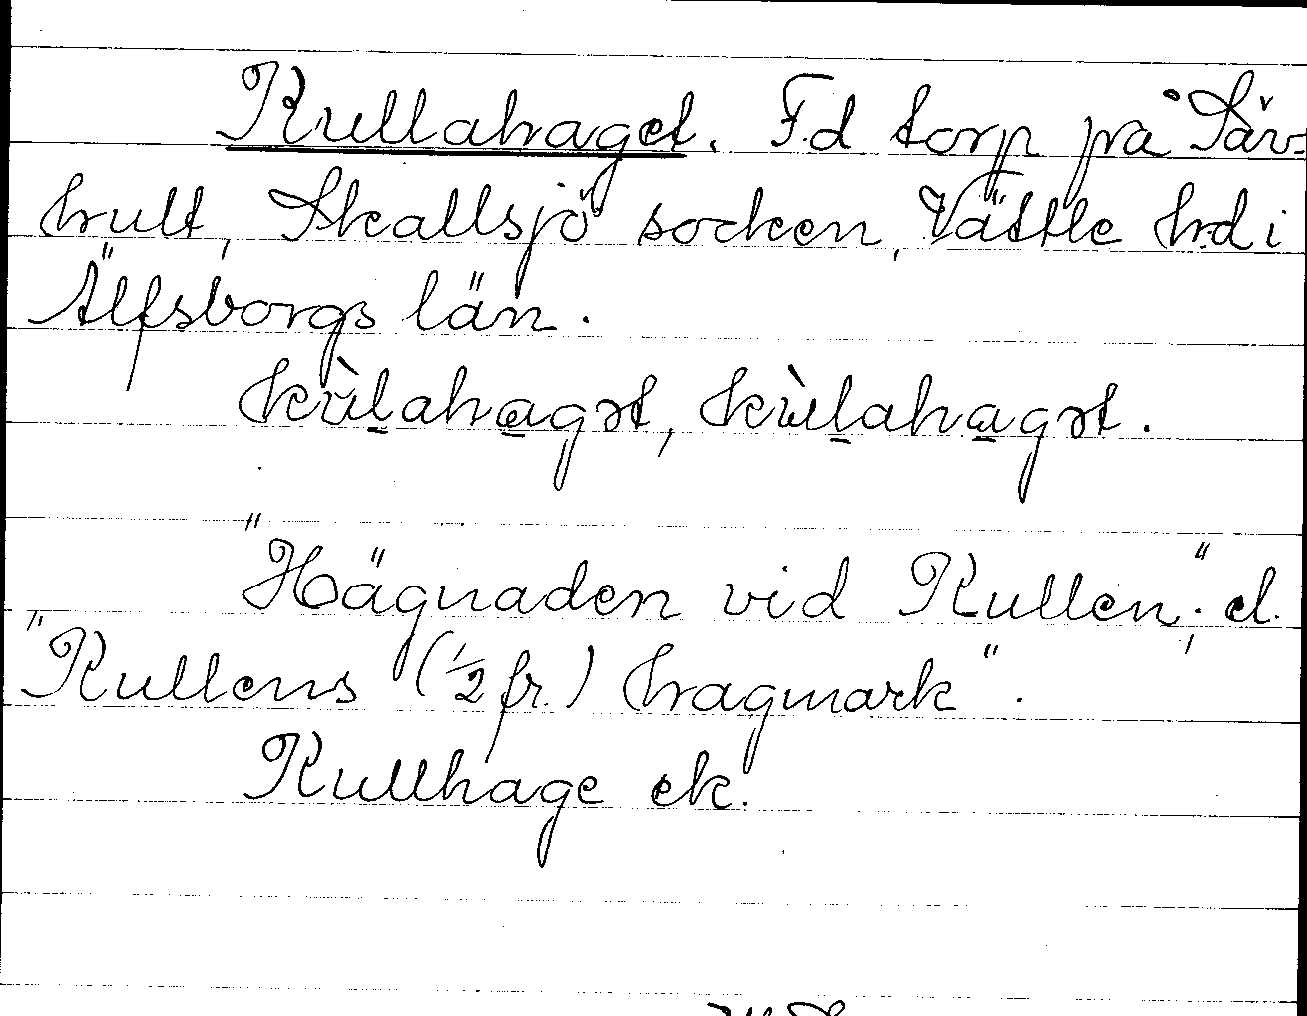 Kullahaget. F.d torp på Säv-
hult, Skallsjö socken, Vättle hrd i
Älfsborgs län.
kùlahagət, kùlahagət.
"Hägnaden vid Kullen", el.
"Kullens (1/2 fr.) hagmark".
Kullhage ek.